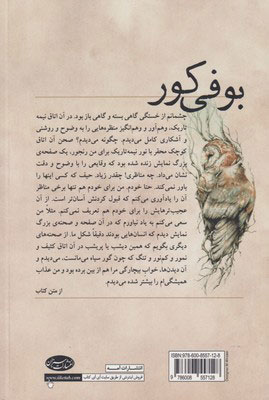 بوفی‌کور
چشمانم از خستگی گاهی بسته و گاهی باز بود. در آن اتاق نیمه
تاریک، وهم‌آور و وهم‌انگیز منظره‌هایی را به وضوح و روشنی
و آشکاری کامل می‌دیدم. چگونه می‌دیدم؟ صحن آن اتاق
کوچک محقر با نور نیمه‌تاریک برای من رنجور، یک صفحه‌ی
بزرگ نمایش زنده شده بود که وقایعی را با وضوح و دقت
نشان می‌داد. چه مناظری! چقدر زیاد. حیف که کسی اینها را
باور نمی‌کند. حتا خودم. من برای خودم هم تنها برخی مناظر
آن را یادآوری می‌کنم که قبول کردنش آسان‌تر است. از
عجیب‌ترهایش را برای خودم هم تعریف نمی‌کنم. مثلاً من
سعی می‌کنم به یاد نیاورم که در آن صفحه و صحنه‌ی بزرگ
نمایش دیدم که انسان‌هایی بودند دقیقا شکل ما. از صحنه‌های
دیگری بگویم که همین دیشب یا پریشب در آن اتاق کثیف و
نمور و کم‌نور و تنگ که چون گور سیاه می‌مانست، می‌دیدم و
آن دیدن‌ها، خواب بیچارگی مرا هم از بین برده بود و من عذاب
همیشگی‌ام را بیشتر شده می‌دیدم.
از متن کتاب
انتشارات آمه
فروش اینترنتی از طریق سایت آی آی کتاب
www.iiketab.com
ISBN: 978-600-8557-12-8
9 786008 557128